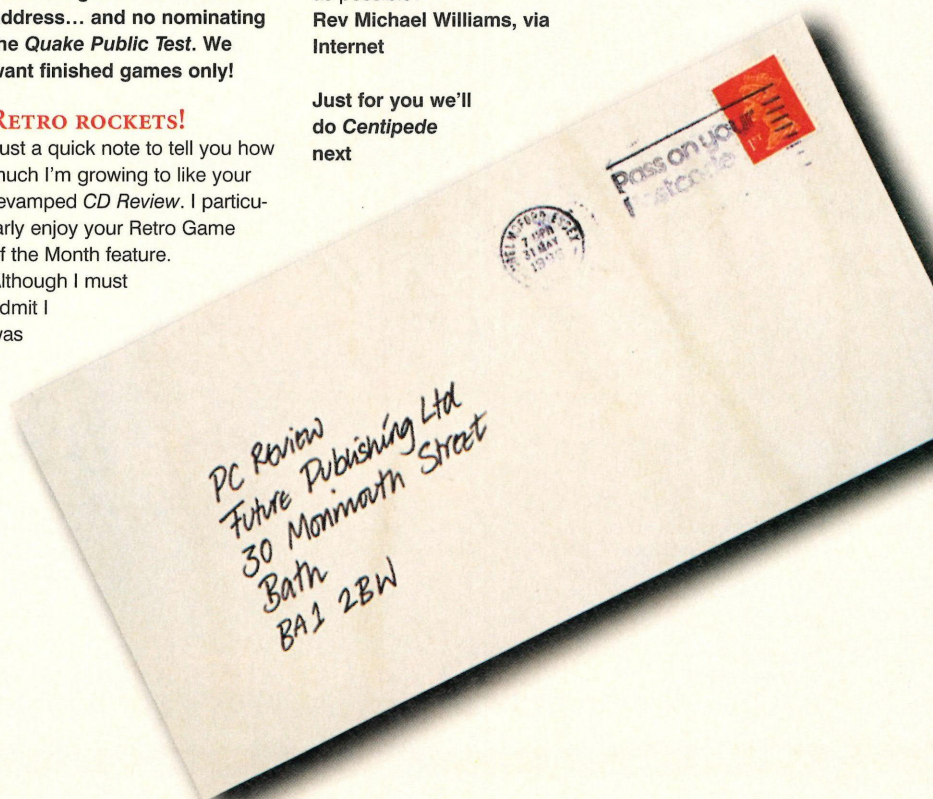 address… and no nominating
the Quake Public Test. We
want finished games only!
RETRO ROCKETS!
Just a quick note to tell you how
much I'm growing to like your
revamped CD Review. I particu-
larly enjoy your Retro Game
of the Month feature.
Although I must
admit I
was
Rev Michael Williams, via
Internet
Just for you we'll
do Centipede
next
Pass on your
Postcode
1ST
CHELMSFORD ESSEX
31 MAY
PC Review
Future Publishing Ltd
30 Monmouth Street
Bath
BA1 2BW